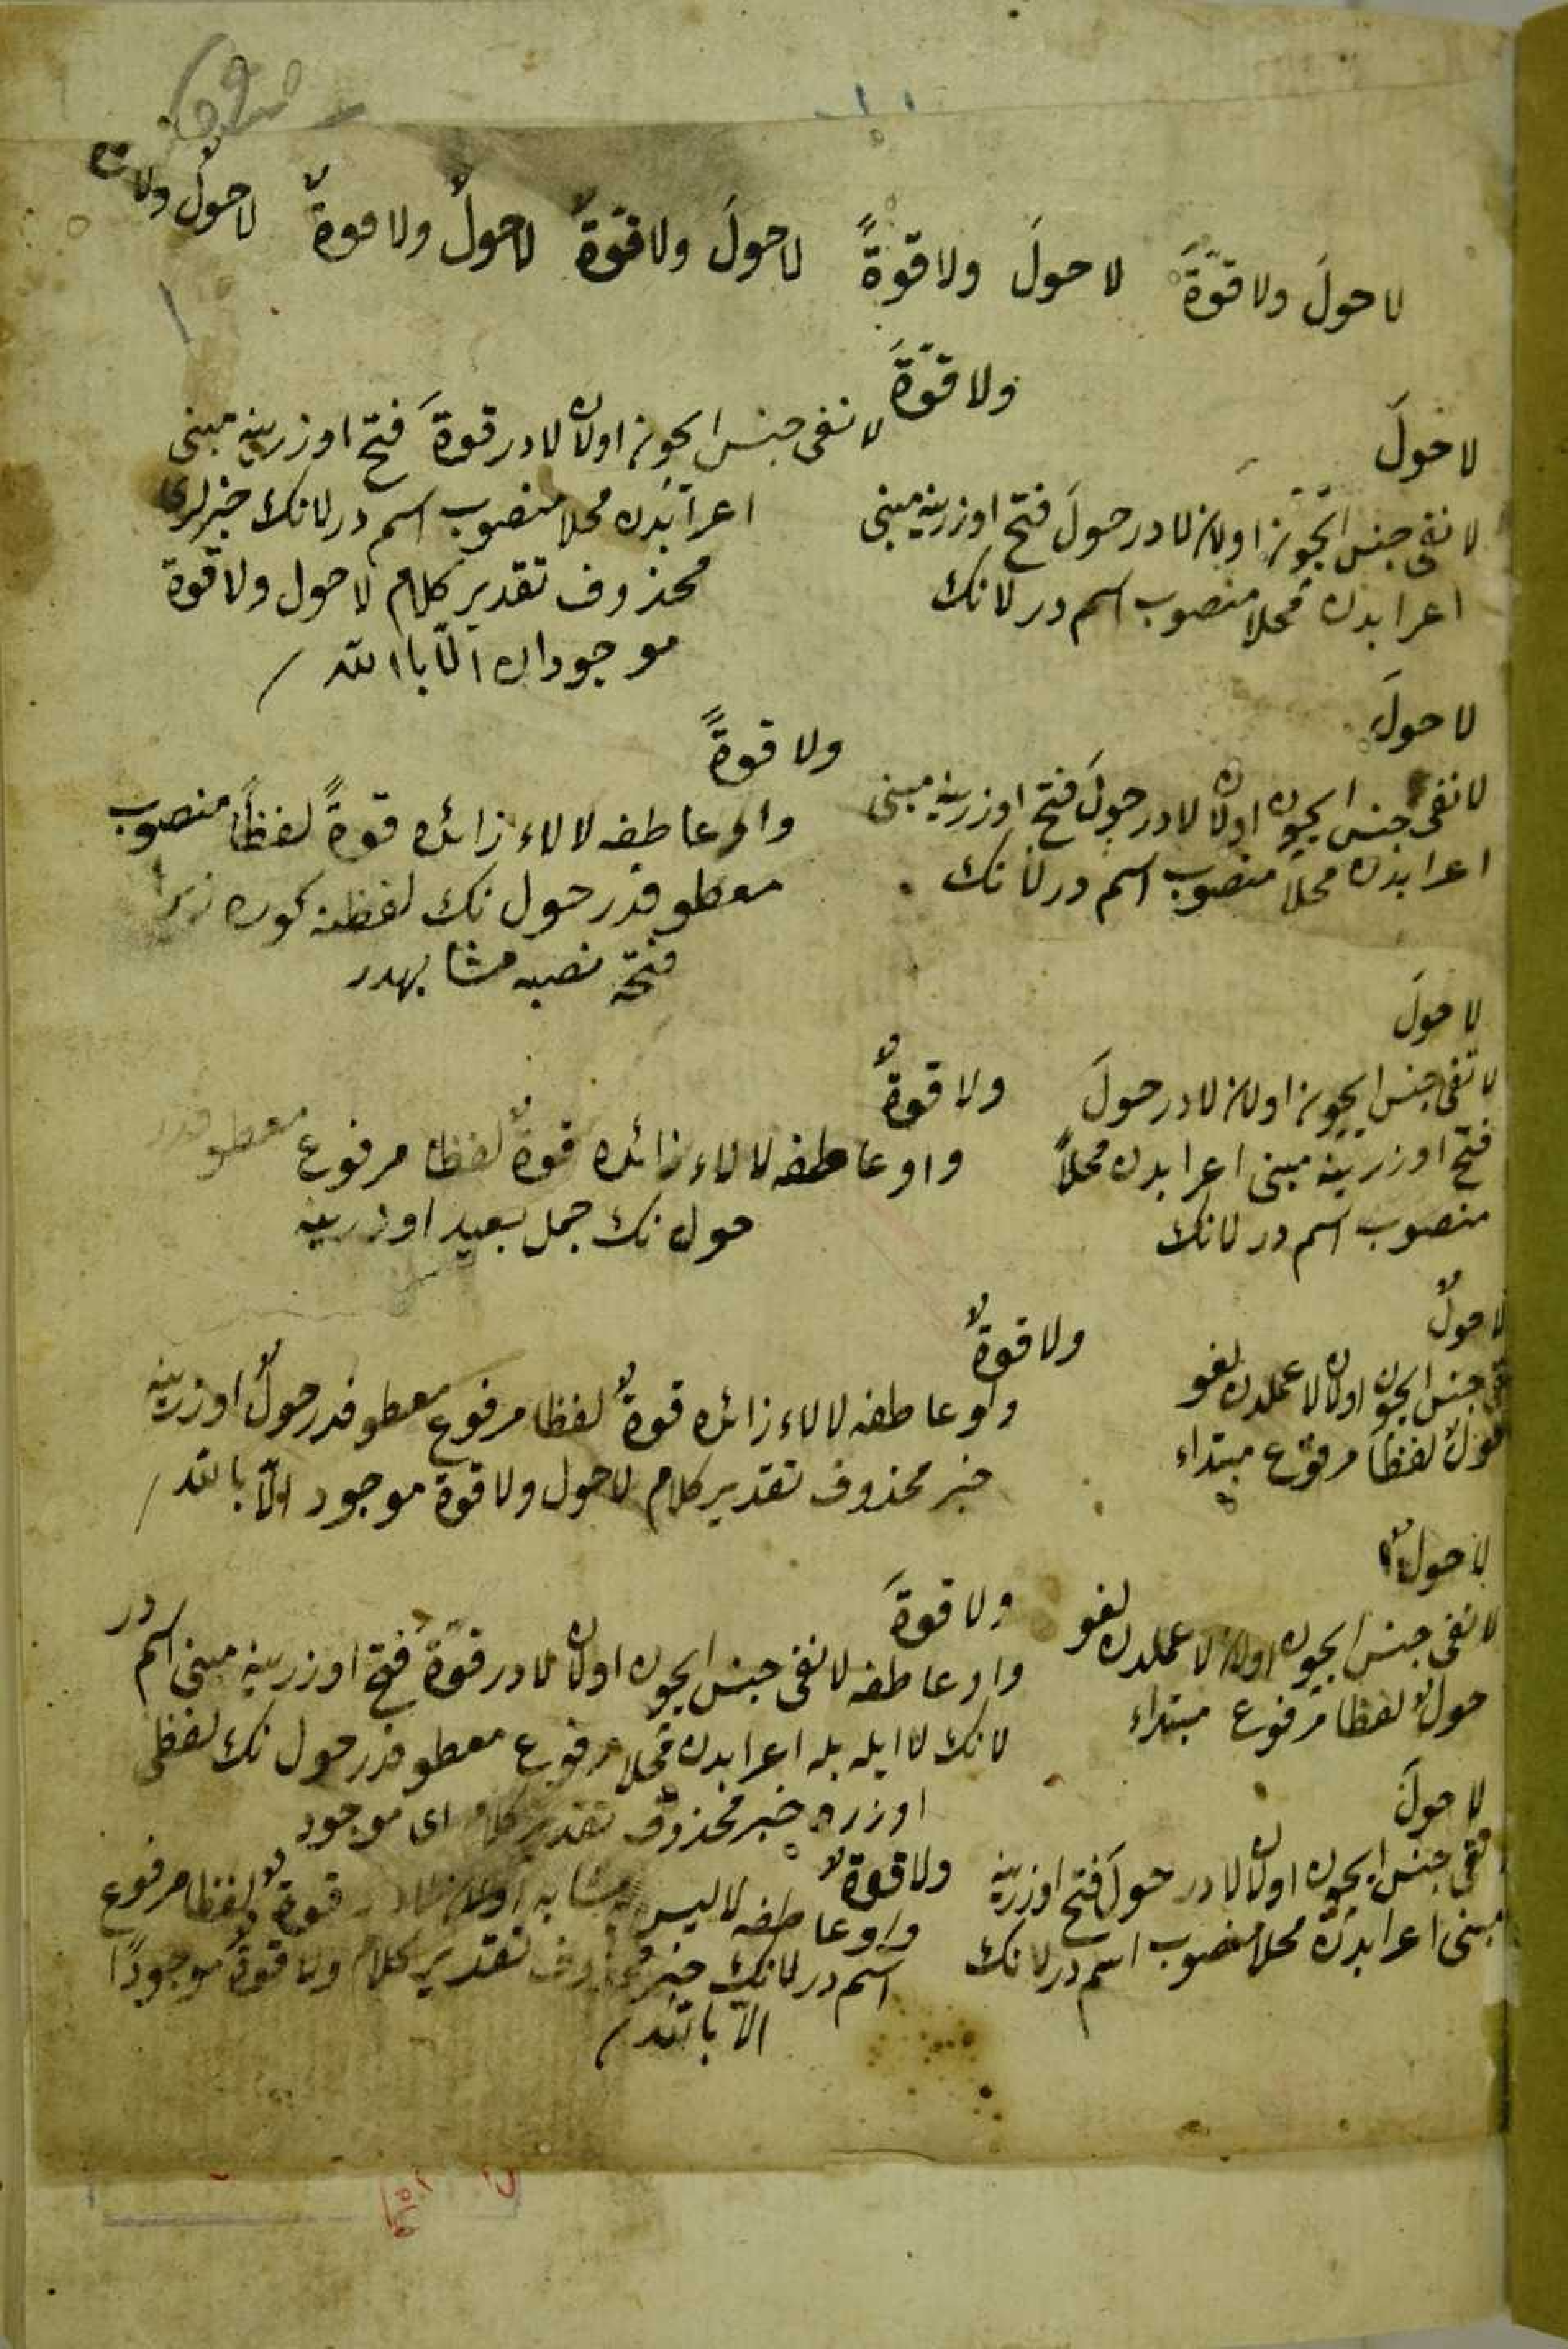 لا حولَ ولا قوّةَ لا حولَ ولا قوةً لا حولَ ولا قوّةٌ لا حولٌ ولا قوةٌ لا حولٌ ولا
لا حولَ
لا نفى جنس ايچون اولان لا در حولَ فتح اوزرينه مبنى
اعرابدن محلا منصوب اسم در لانك
ولا قوّةَ
لا نفى جنس ايچون اولان لا در قوةَ فتح اوزرينه مبنى
اعرابدن محلا منصوب اسم در لانك خبرلرى
محذوف تقدير كلام لا حول ولا قوة
موجودان الّا باالله
لا حولَ
لا نفى جنس ايچون اولان لا در حولَ فتح اوزرينه مبنى
اعرابدن محلاً منصوب اسم در لانك
ولا قوةً
واو عاطفه لا لاء زائده قوةً لفظاً منصوب
معطوفدر حول نك لفظنه كوره زيرا
فتحه نصبه مشابهدر
لا حولَ
لا نفى جنس ايچون اولان لا در حولَ
فتح اوزرينه مبنى اعرابدن محلاً
منصوب اسم در لانك
ولا قوةٌ
واو عاطفه لا لاء زائده قوةٌ لفظا مرفوع معطوفدر
حول نك بعيد اوزرينه
لا حولٌ
نفى جنس ايچون اولان لا عملدن لغو
حولٌ لفظاً مرفوع مبتداء
ولا قوةٌ
واو عاطفه لا لاء زائده قوةٌ لفظا مرفوع معطوفدر حولٌ اوزرينه
خبر محذوف تقدير كلام لا حول ولا قوة موجود الّا بالله
لا حولٌ
لا نفى جنس ايچون اولان لا عملدن لغو
حولٌ لفظا مرفوع مبتداء
ولا قوةَ
واو عاطفه لا نفى جنس ايچون اولان لا در قوةَ فتح اوزرينه مبنى اسم در
لانك لا ايله بله اعرابدن محلا مرفوع معطوفدر حول نك لفظى
اوزره خبر محذوف تقدير كلام اى موجود
لا حولَ
نفى جنس ايچون اولان لا در حولَ فتح اوزرينه
مبنى اعرابدن محلا منصوب اسم در لانك
ولا قوةٌ
واو عاطفه لا ليس مشابه اولان لا در قوةٌ لفظا مرفوع
اسم در لانك خبر محذوف تقدير كلام ولا قوةٌ موجودًا
الّا بالله